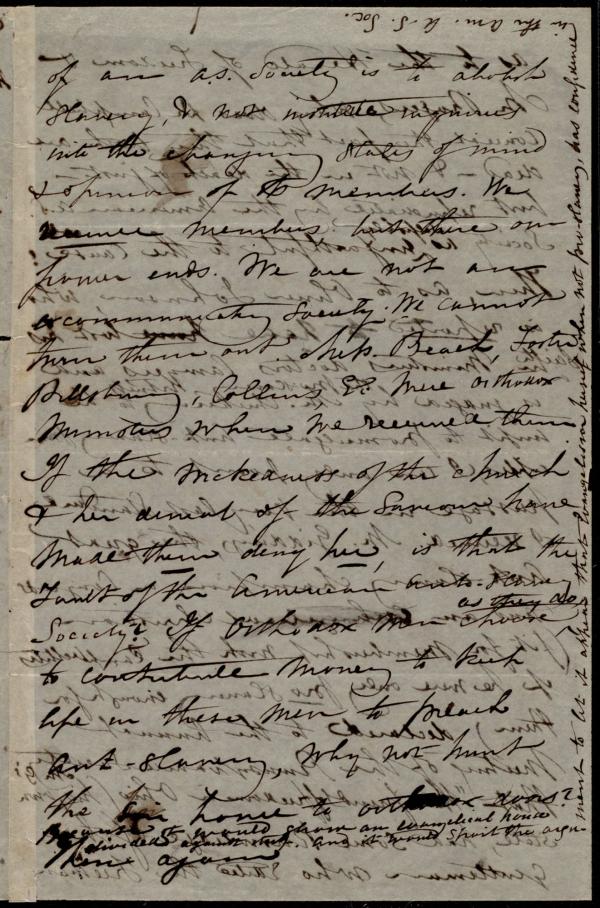 of an a.s. Society is to abolish
slavery, & not institute inquiries
into the changing states of mind
& opinion of its members. We
receive members, but there our
power ends. We are not an
excommunicating Society. We cannot
turn them out. Messrs. Beach, Foster
Pillsbury, Collins &c were orthodox
Ministers when we received them
If the wickedness of the church
& her denial of the Saviour have
made them deny her, is that the
fault of the American Anti-Slavery
Society? If Orthodox men choose, as they do,
to contribute money to keep
life in these men to preach
anti-slavery, why not hunt
the home to orthodox doors?
Because it would show an evangelical house
divided against itself. And it would spoil the argu-
ment to let it appear that Evangelism herself when not pro-slavery, has confidence
in the Am. A. S. Soc.
Here again
gentleman who